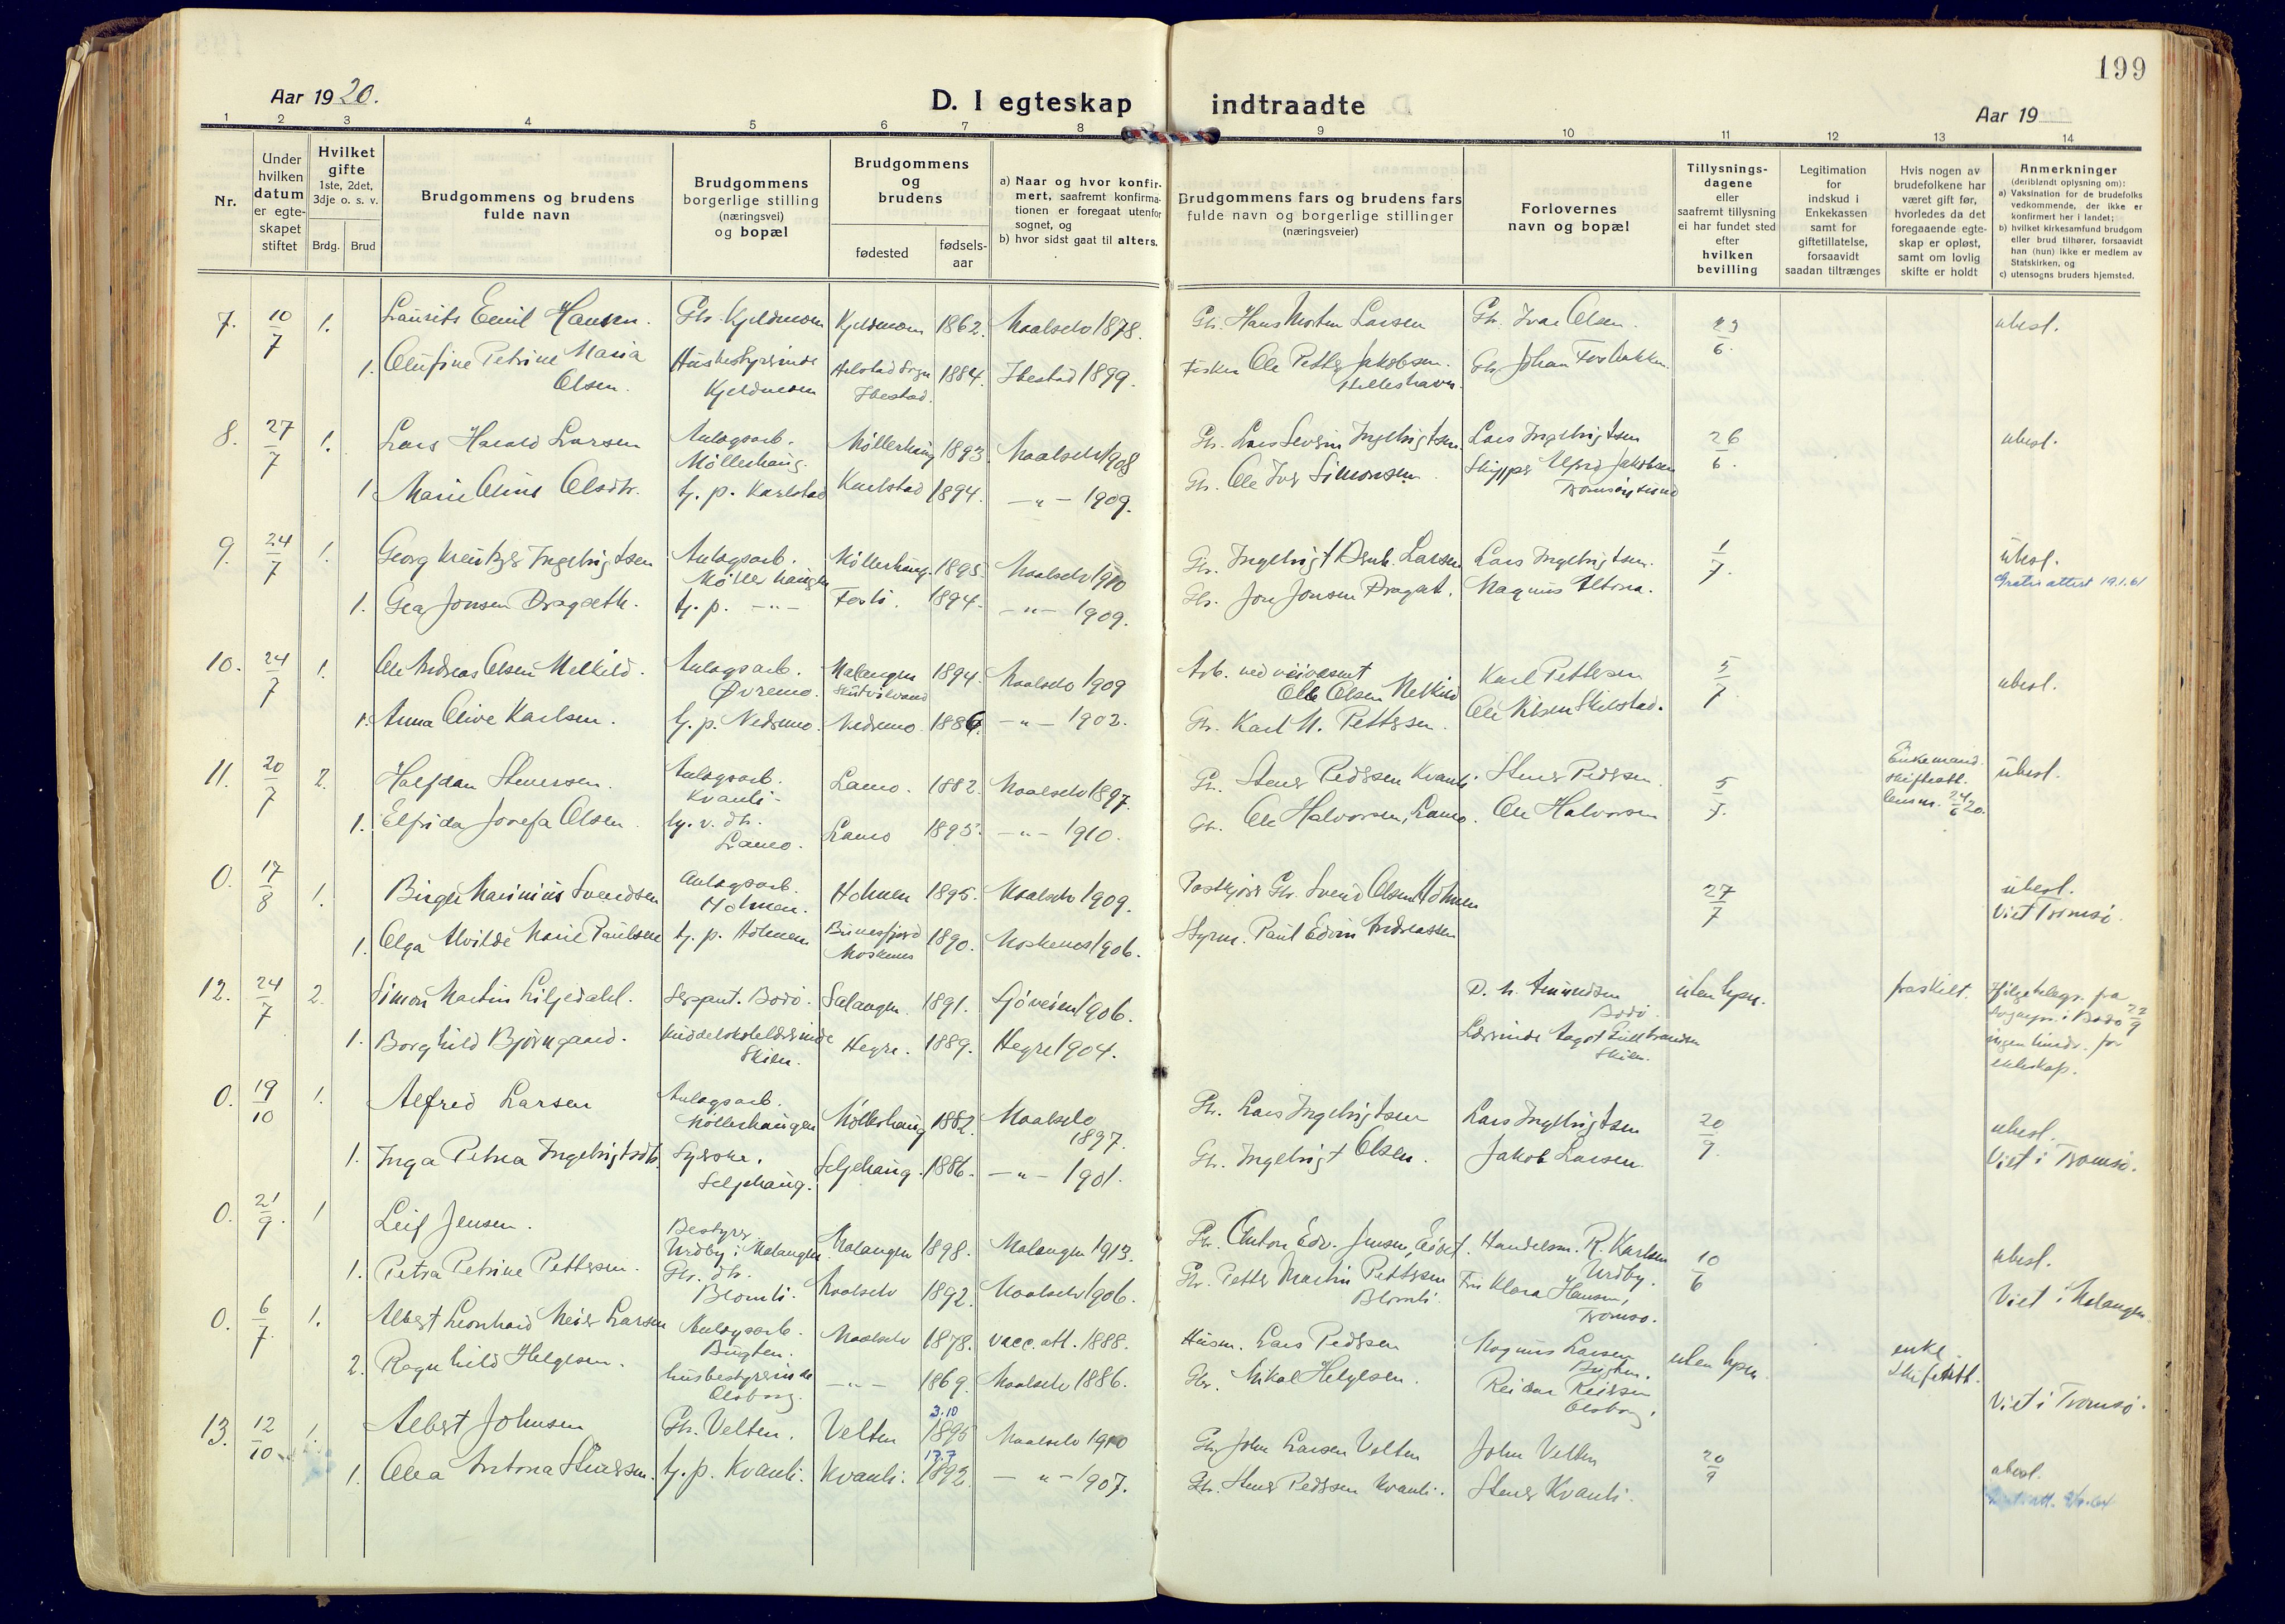 199
Aar 1920.
D. I egteskap indtraadte
Aar 19
1 2 3 4 5 6 7 8 9 10 11 12 13 14
Nr.
Under hvilken datum er egteskapet stiftet
Hvilket gifte 1ste, 2det, 3dje o. s. v.
Brdg. Brud
Brudgommens og brudens fulde navn
Brudgommens borgerlige stilling (næringsvei) og bopæl
Brudgommens og brudens
fødested
fødsels-aar
a) Naar og hvor konfirmert, saafremt konfirmationen er foregaat utenfor sognet, og
b) hvor sidst gaat til alters.
Brudgommens fars og brudens fars fulde navn og borgerlige stillinger (næringsveier)
Forlovernes navn og bopæl
Tillysningsdagene eller saafremt tillysning ei har fundet sted efter hvilken bevilling
Legitimation for indskud i Enkekassen samt for giftetillatelse, forsaavidt saadan tiltrænges
Hvis nogen av brudefolkene har været gift før, hvorledes da det foregaaende egteskap er opløst, samt om lovlig skifte er holdt
Anmerkninger (deriblandt oplysning om):
a) Vaksination for de brudefolks vedkommende, der ikke er konfirmert her i landet;
b) hvilket kirkesamfund brudgom eller brud tilhører, forsaavidt han (hun) ikke er medlem av Statskirken, og
c) utensogns bruders hjemsted.
7. 10/7 1. Laurits Emil Hansen. Gbr. Kjeldmoen Kjeldmoen 1862. Maalselv 1878. Gbr. Hans Morten Larsen Gbr. Ivar Olsen. 6. ubesl.
1. Olufine Petrine Maria Olsen. Husbestyrerinde Kjeldmoen Ibestad. 1884. Ibestad 1899. Fisker Ole Petter Jakobsen. Gbr. Johan
8. 27/7 1. Lars Harald Larsen Anlægsarb. Møllerhaug. Møllerhaug 1893. Maalselv 1908 Gbr. Lars Severin Ingebrigtsen. Lars Ingebrigtsen 26/6. ubesl.
1 Marie Oline Olsdtr. tj. p. Karlstad Karlstad 1894. — " — 1909. Gbr. Ole Iver Simonsen. Skipper Alfred Jakobsen
9. 24/7 1. Georg Kreutzer Ingebrigtsen Anlægsarb. Møllerhaugen Møllerhaug. 1895. Maalselv 1910 Gbr. Ingebrigt Larsen Lars Ingebrigtsen. 1/7. ubesl.
Gratis attest 19.1.61
1. Gea Jonsen Dragseth. tj. p. — " — 1894. — " — 1909. Gbr. Jon Jonsen Magnus
10. 24/7 1. Ole Andreas Olsen Melkild. Anlægsarb. Øvremo. Malangen 1894. Maalselv 1909 Arb. ved veivæsenet Ole Olsen Melkild Karl Pettersen 5/7. ubesl.
1. Anna Olive Karlsen. tj. p. Nedremo. Nedremo 1886. — " — 1902. Gbr. Karl M. Pettersen. Ole Nilsen
11. 20/7 2. Halfdan Stenersen. Anlægsarb. Kvanli Lamo. 1882. Maalselv 1897. Gbr. Stener Pedersen Kvanli Stener Pedersen. 5/7. Enkemand. Skifteatt. lensm. 24/6 20. ubesl.
1. Elfrida Josefa Olsen. tj. v. dtr. Lamo. Lamo 1895. — " — 1910. Gbr. Ole Halvorsen, Lamo. Ole Halvorsen
0. 17/8 1. Birger Marinius Svendsen Anlægsarb. Holmen. Holmen 1895. Maalselv 1909. Postkjører Gbr. Svend Olsen Holmen 27/7 ubesl.
Viet Tromsø.
1. Olga Alvilde Marie Paulsen tj. p. Holmen Bunesfjord Moskenes 1890. Moskenes 1906. Styrm. Paul Edvin Andreassen
12. 24/7 2. Simon Martin Liljedahl. Sersjant. Bodø. Salangen. 1891. Sjøveien 1906. Amundsen Bodø. uten lysn. fraskilt. ifølge telegr. fra sognepr. i Bodø ingen hindr. for ekteskap.
1. Borghild Bjørngaard. Middelskolelærerinde Skien. Hegre. 1889. Hegre 1904. Lærerinde Aagot Gulbrandsen Skien.
0. 19/10 1. Alfred Larsen Anlægsarb. Møllerhaugen Møllerhaug 1882. Maalselv 1897. Gbr. Lars Ingebrigtsen Lars Ingebrigtsen 20/9. ubesl.
Viet i Tromsø.
1. Inga Petrea Ingebrigtsdtr. Syerske. Seljehaug. Seljehaug. 1886. — " — 1901. Gbr. Ingebrigt Olsen. Jakob Larsen.
0. 21/9. 1 Leif Jensen. Bestyrer Urdby i Malangen. Malangen 1898. Malangen 1913. Gbr. Anton Edv. Jensen, Handelsm. R. Karlsen Urdby. 10/6 ubesl.
Viet i Malangen
1. Petra Petrine Pettersen. Gbr. dtr. Blomli. Maalselv 1892. Maalselv 1906. Gbr. Petter Martin Pettersen Blomli. Frk Klara Hansen, Tromsø.
0. 6/7. 1. Albert Leonhard Meier Larsen Anlægsarb. Bugten. Maalselv 1878. vacc. att. 1888. Husm. Lars Pedersen Magnus Larsen Bugten. uten lysn. enke Skifteatt.
Viet i Tromsø.
2. Ragnhild Helgesen. husbestyrerinde Olsborg. — " — 1869. Maalselv 1886. Gbr. Mikal Helgesen. Reidar Olsborg.
13. 12/10 1. Albert Johnsen Gbr. Velten. Velten 3.10 1895 Maalselv 1910 Gbr. John Larsen Velten John Velten 20/9 ubesl.
1. Olea Antona Stenersen. tj. p. Kvanli. Kvanli. 17.7 1892. — " — 1907. Gbr. Stener Pedersen Kvanli. Stener Kvanli.